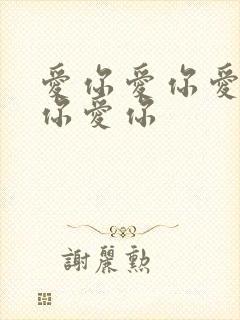 愛你愛你愛
你愛你
謝麗勲